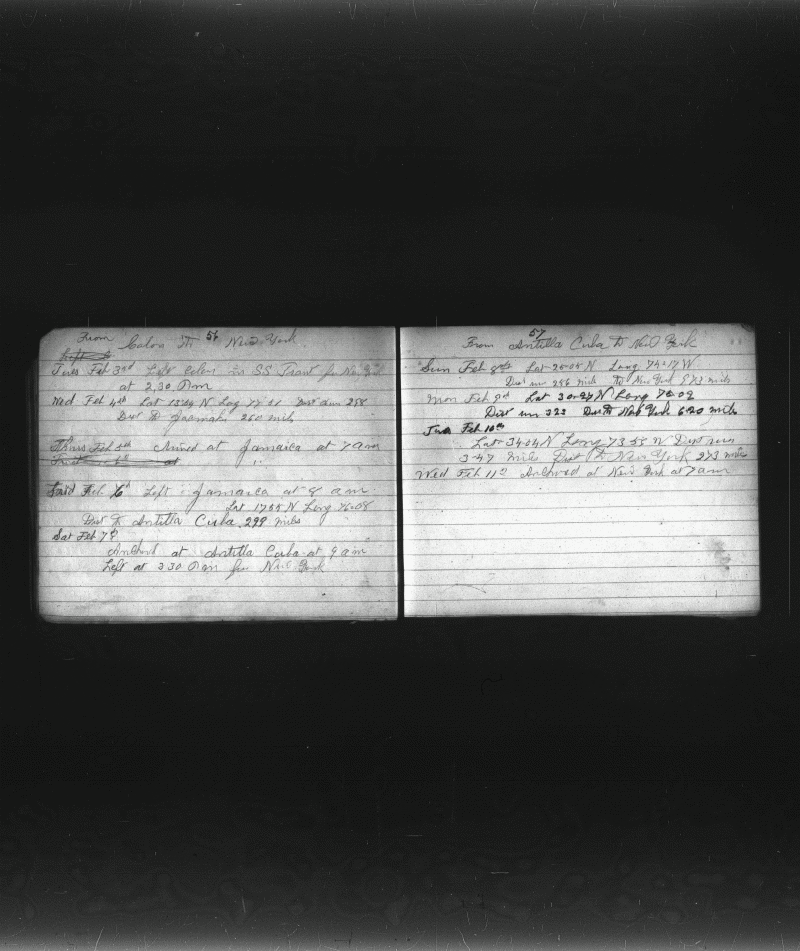 56
From Colon To New York
Tues Feb 3rd Left Colon in SS Trent for New York
at 2.30 Pm
Wed Feb 4th Lat 13-29 N Long 77-21 Dist run 298
Dist to Jaamaika 260 mils
Thurs Feb 5th Arived at Jamaica at 7 am
Frid Feb 6th Left Jamaica at 8 am
Lat 17 55 N Long 76-08
Dist to Antilla Cuba 299 mils
Sat Feb 7th
Arived at Antilla Cuba at 9 am
Left at 3 30 Pm for New York
57
From Antilla Cuba To New York
Sun Feb 8th Lat 25-05 N Long 74-17 W
Dist run 256 mils To New York 973 mils
Mon Feb 9th Lat 30-27 N Long 74-02
Dist run 323 Dist to New York 620 mils
Tues Feb 10th
Lat 34-04 N Long 73 55 W Dist run
347 mils Dist To New York 273 mils
Wed Feb 11th Arived at New York at 7 am